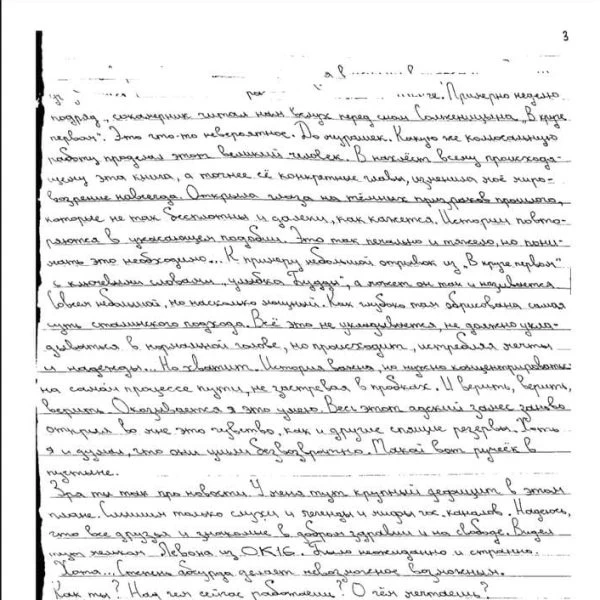 3
я в в
ра че. Примерно неделю
подряд, сокамерник читал нам вслух перед сном Солженицына „В круге
первом“. Это что-то невероятное. До мурашек. Какую же колоссальную
работу проделал этот великий человек. В нахлёст всему происходя-
щему эта книга, а точнее её конкретные главы, изменила моё миро-
воззрение навсегда. Открыла глаза на тёмных призраков прошлого,
которые не так бесплотны и далеки, как кажется. Истории повто-
ряются в ужасающем подобии. Это так печально и тяжело, но пони-
мать это необходимо... К примеру небольшой отрывок из „В круге первом“
с ключевыми словами „улыбка Будды“, а может он так и называется
Совсем небольшой, но насколько мощный. Как глубоко там обрисована самая
суть сталинского подхода. Всё это не укладывается, не должно укла-
дываться в нормальной голове, но происходит, истребляя мечты
и надежды... Но хватит. История важна, но нужно концентрироваться
на самом процессе пути, не застревая в пробках. И верить, верить,
верить. Оказывается я это умею. Весь этот адский занес заново
открыл во мне это чувство, как и другие спящие резервы. Хоть
я и думал, что они ушли безвозвратно. Такой вот ручеёк в
пустыне.
Зря ты так про новости. У меня тут крупный дефицит в этом
плане. Слышим только слухи и легенды и мифы гос. каналов. Надеюсь,
что все друзья и знакомые в добром здравии и на свободе. Видел
тут мельком Левона из ОК16. Было неожиданно и странно.
Хотя... Степень абсурда делает невозможное возможным.
Как ты? Над чем сейчас работаешь? О чём мечтаешь?